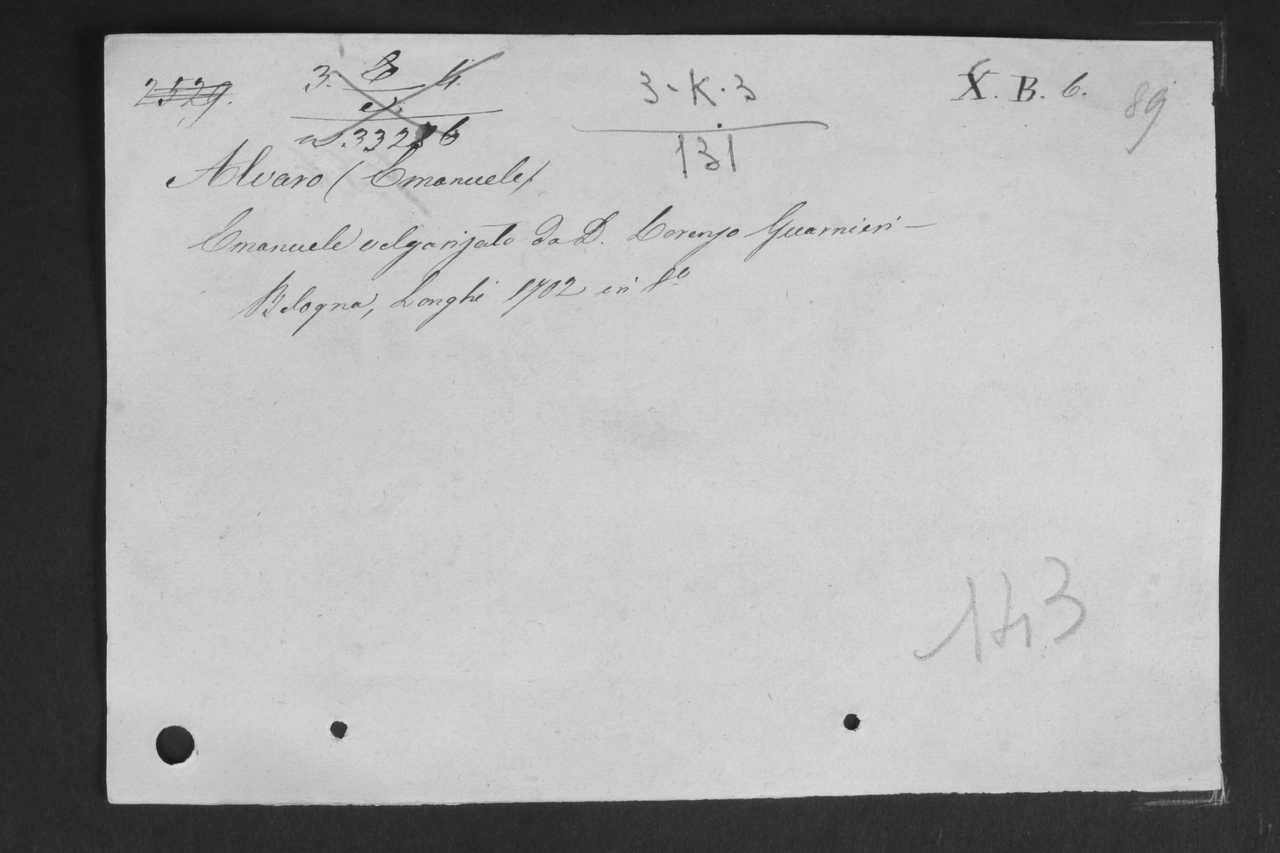 2529.
3. E 4
3-K-3
131
X. B. 6.
89
Alvaro (Emanuele)
Emanuele volgarizato da D. Lorenzo Guarnieri –
Bologna, Longhi 1702 in 8º
143